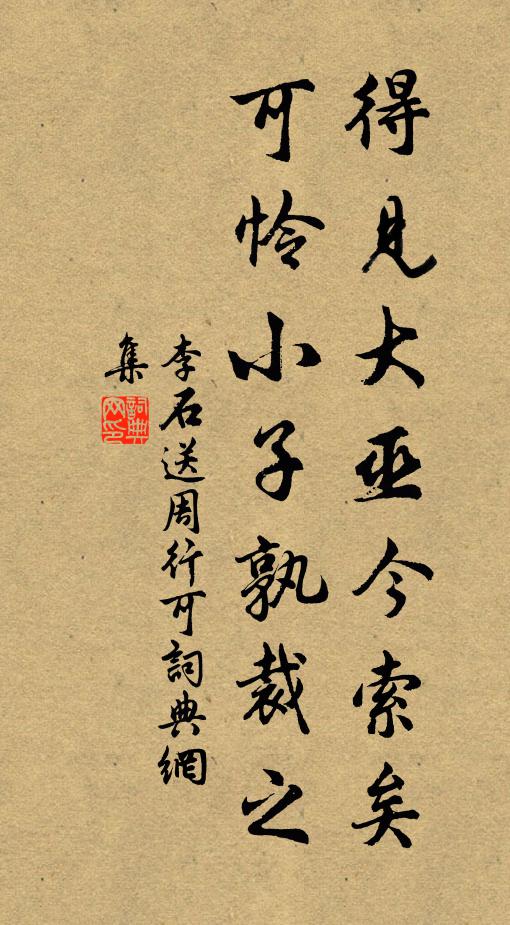 得見大巫今索矣
可怜小子孰裁之
李石送周行可詞典網
集
詞典网印